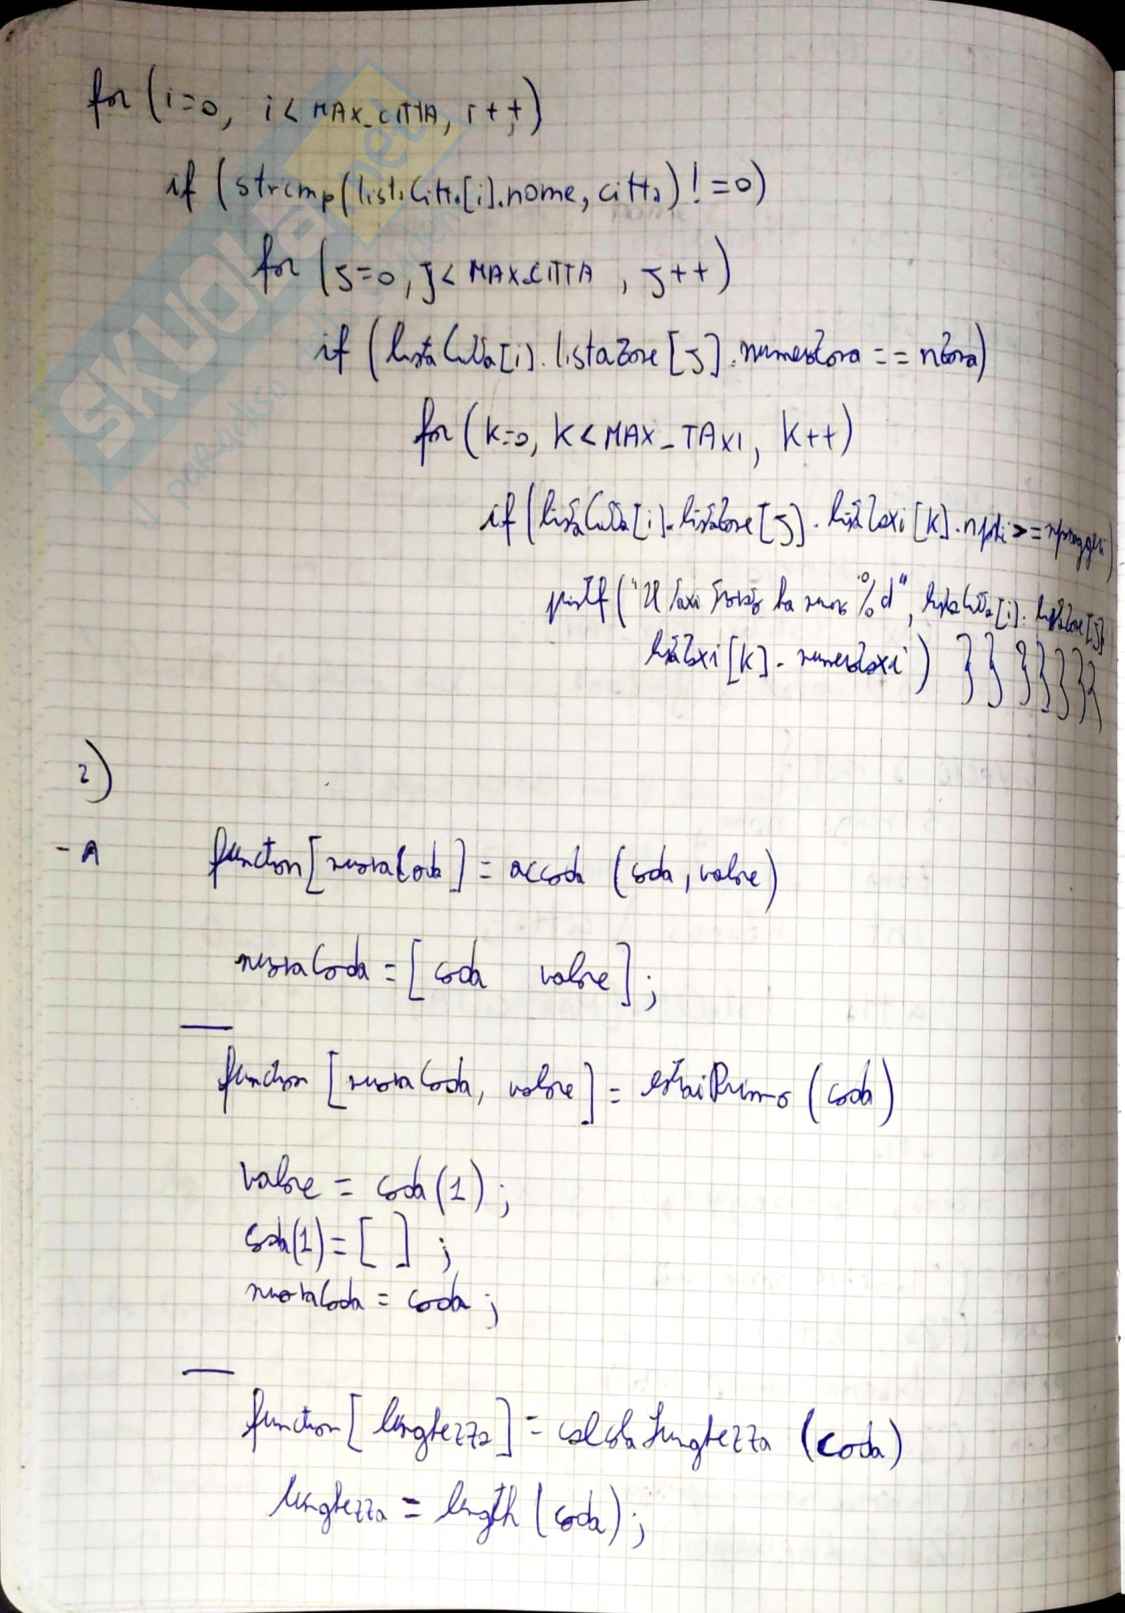 for (i=0, i< MAX_CITTA, i++)
if (strcmp(listaCitta[i].nome, citta) !=0)
for (j=0, j< MAX_CITTA, j++)
if (listaCitta[i].listaZone[j].numeroZona == nZona)
for (k=0, k< MAX_TAXI, k++)
if (listaCitta[i].listaZone[j].listaTaxi[k].nposti >=
printf ("Il taxi trovato ha num %d", listaCitta[i].listaZone[j]
listaTaxi[k].numeroTaxi) }} }}}}}
2)
- A
function [nuovaCoda] = accoda (coda, valore)
nuovaCoda = [coda valore];
function [nuovaCoda, valore] = estraiPrimo (coda)
valore = coda(1);
coda(1) = [ ] ;
nuovaCoda = coda;
function [lunghezza] = calcolaLunghezza (coda)
lunghezza = length (coda);
SKUOLA.net
il paradiso